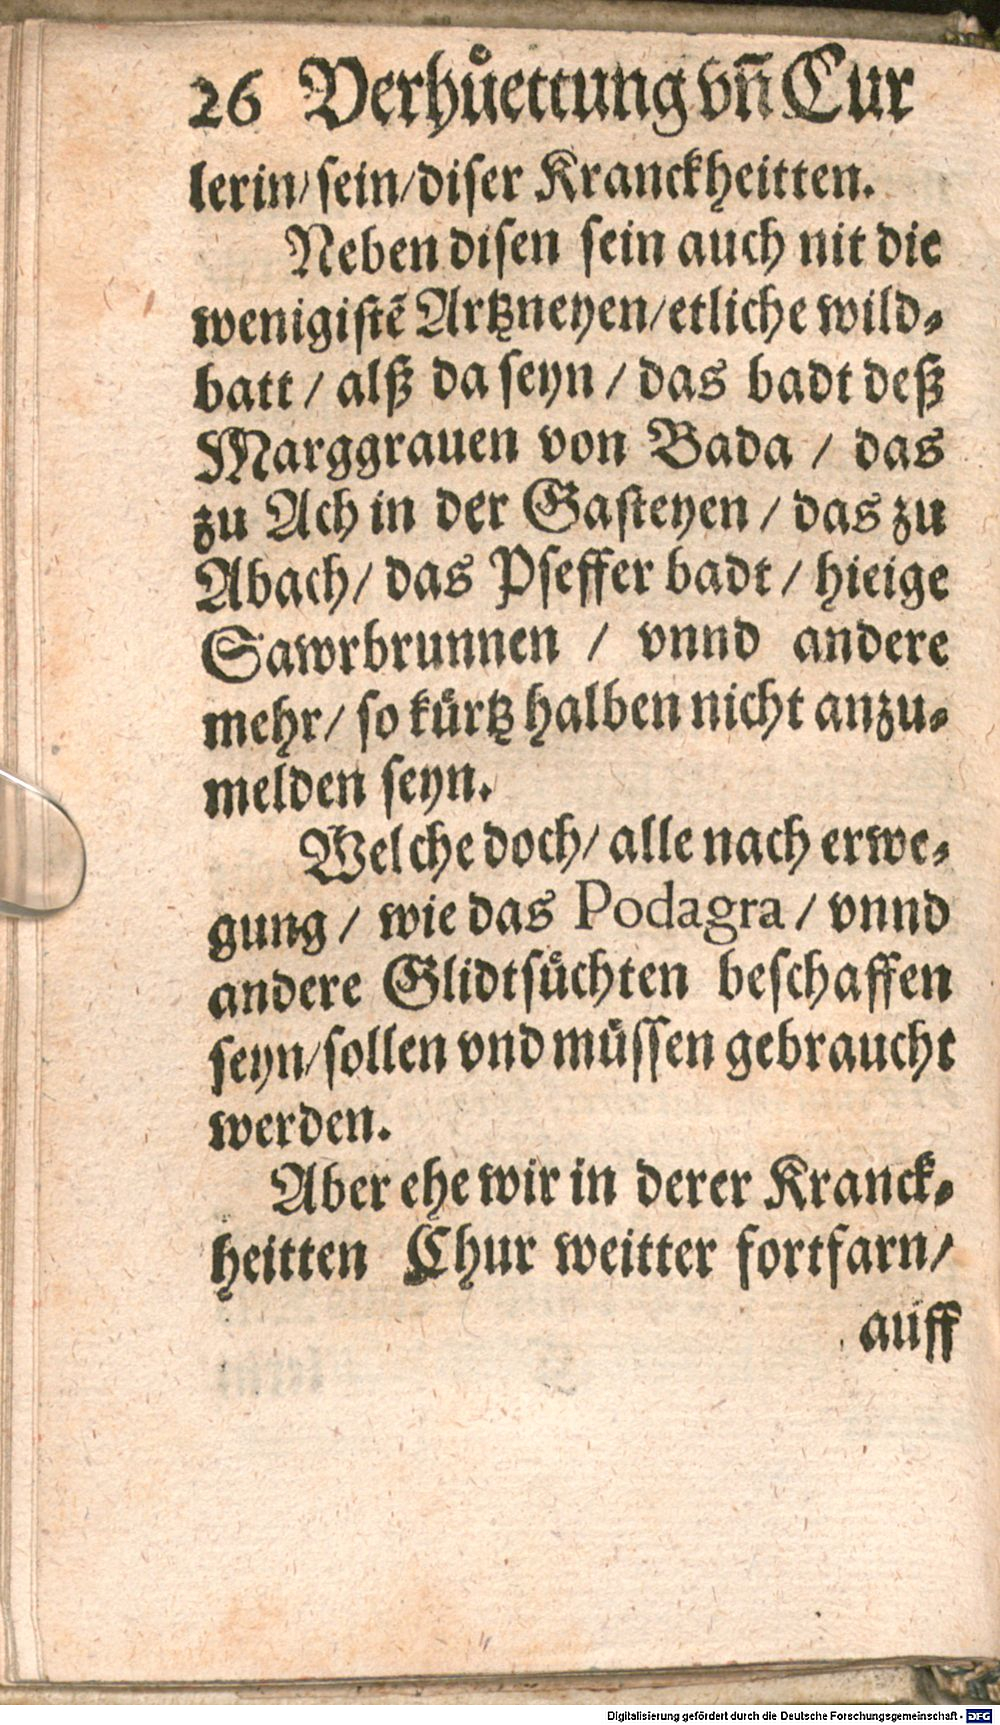 26 Verhuͤettung vñ Cur
lerin/ sein/ diser Kranckheitten.
Neben disen sein auch nit die
wenigistẽ Artzneyen/ etliche wild⸗
batt / alß da seyn / das badt deß
Marggrauen von Bada / das
zu Ach in der Gasteyen / das zu
Abach/ das Pseffer badt / hieige
Sawrbrunnen / vnnd andere
mehr/ so kuͤrtz halben nicht anzu⸗
melden seyn.
Welche doch/ alle nach erwe⸗
gung / wie das Podagra / vnnd
andere Glidtsuͤchten beschaffen
seyn/ sollen vnd muͤssen gebraucht
werden.
Aber ehe wir in derer Kranck⸗
heitten Chur weitter fortfarn/
auff
Digitalisierung gefördert durch die Deutsche Forschungsgemeinschaft - DFG